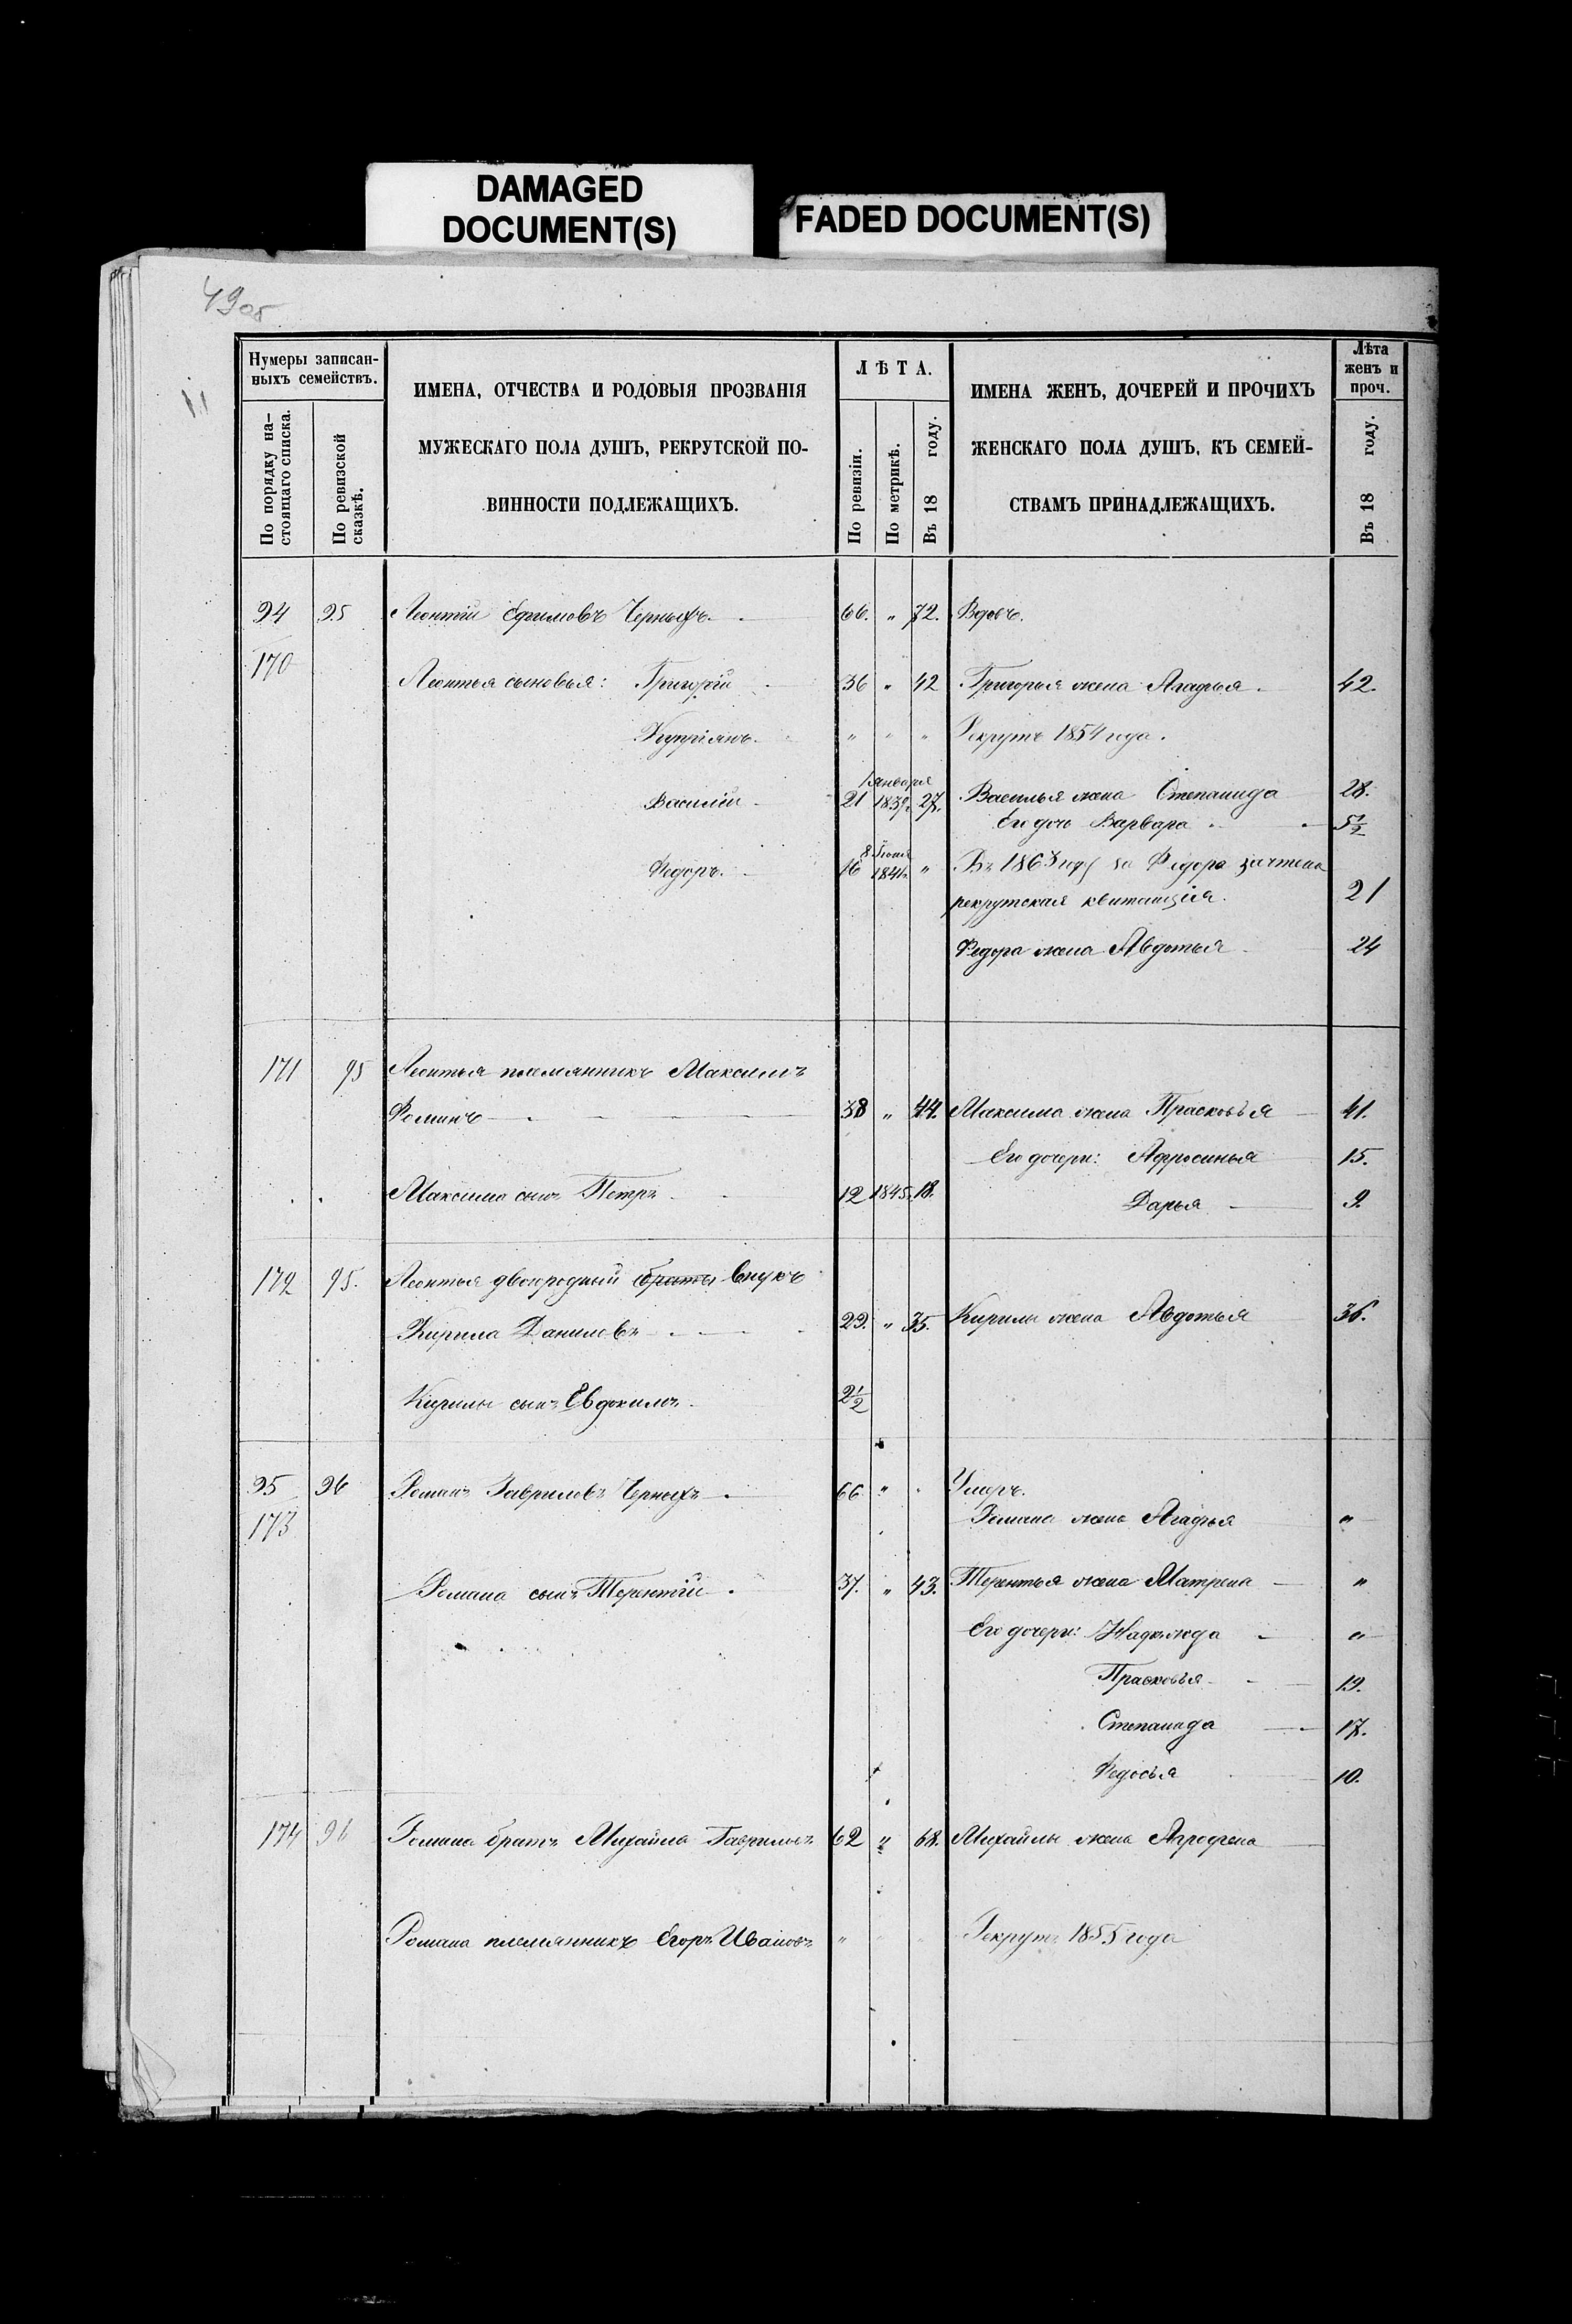 DAMAGED
DOCUMENT(S)
FADED DOCUMENT(S)
49об
Нумеры записан-
ныхъ семействъ.
По порядку на-
стоящаго списка.
По ревизской
сказкѣ.
ИМЕНА, ОТЧЕСТВА И РОДОВЫЯ ПРОЗВАНІЯ
МУЖЕСКАГО ПОЛА ДУШЪ, РЕКРУТСКОЙ ПО-
ВИННОСТИ ПОДЛЕЖАЩИХЪ.
ЛѢТА.
По ревизіи.
По метрикѣ.
Въ 18 году.
ИМЕНА ЖЕНЪ, ДОЧЕРЕЙ И ПРОЧИХЪ
ЖЕНСКАГО ПОЛА ДУШЪ, КЪ СЕМЕЙ-
СТВАМЪ ПРИНАДЛЕЖАЩИХЪ.
Лѣта
женъ и
проч.
Въ 18 году.
94 95 Леонтій Ефимовъ Черныхъ. 66. " 72. Вдовъ.
170
Леонтья сыновья: Григорій 36 " 42 Григорья жена Агафья 42.
Купріянъ. " " " Рекрутъ 1854 года.
1 января
Василій 21 1837. 27. Василья жена Степанида 28.
Его дочь Варвара 5½
8 Іюня
Федоръ. 16 1841. " Въ 1863 году за Федора зачтена
рекрутская квитанція. 21
Федора жена Авдотья 24
171 95 Леонтья племянникъ Максимъ
Фоминъ 38 " 44. Максима жена Прасковья 41.
Его дочери: Афросинья 15.
Максима сынъ Петръ 12 1845. 18.
Дарья 9.
172 95. Леонтья двоюродный братъ внукъ
Кирила Даниловъ 29. " 35. Кирилы жена Авдотья 36.
Кирилы сынъ Евдокимъ 2½
95 96 Романъ Гавриловъ Черныхъ 66 " Умеръ.
173 Романа жена Агафья "
Романа сынъ Терентій 37. " 43. Терентья жена Матрена "
Его дочери: Надежда "
Прасковья 19.
Степанида 17.
Федосья 10.
174 96 Романа братъ Михайла Гавриловъ 62 " 68. Михайлы жена Аграфена
Романа племянникъ Егоръ Ивановъ " Рекрутъ 1855 года